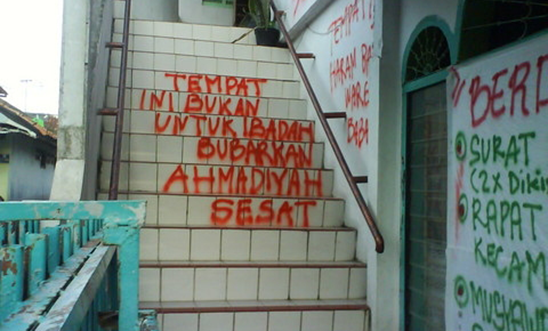 TEMPAT
INI BUKAN
UNTUK IBADAH
BUBARKAN
AHMADIYAH
SESAT
TEMPAT
HARAM
BERD
SURAT
(2X Dikir
RAPAT
KECAM